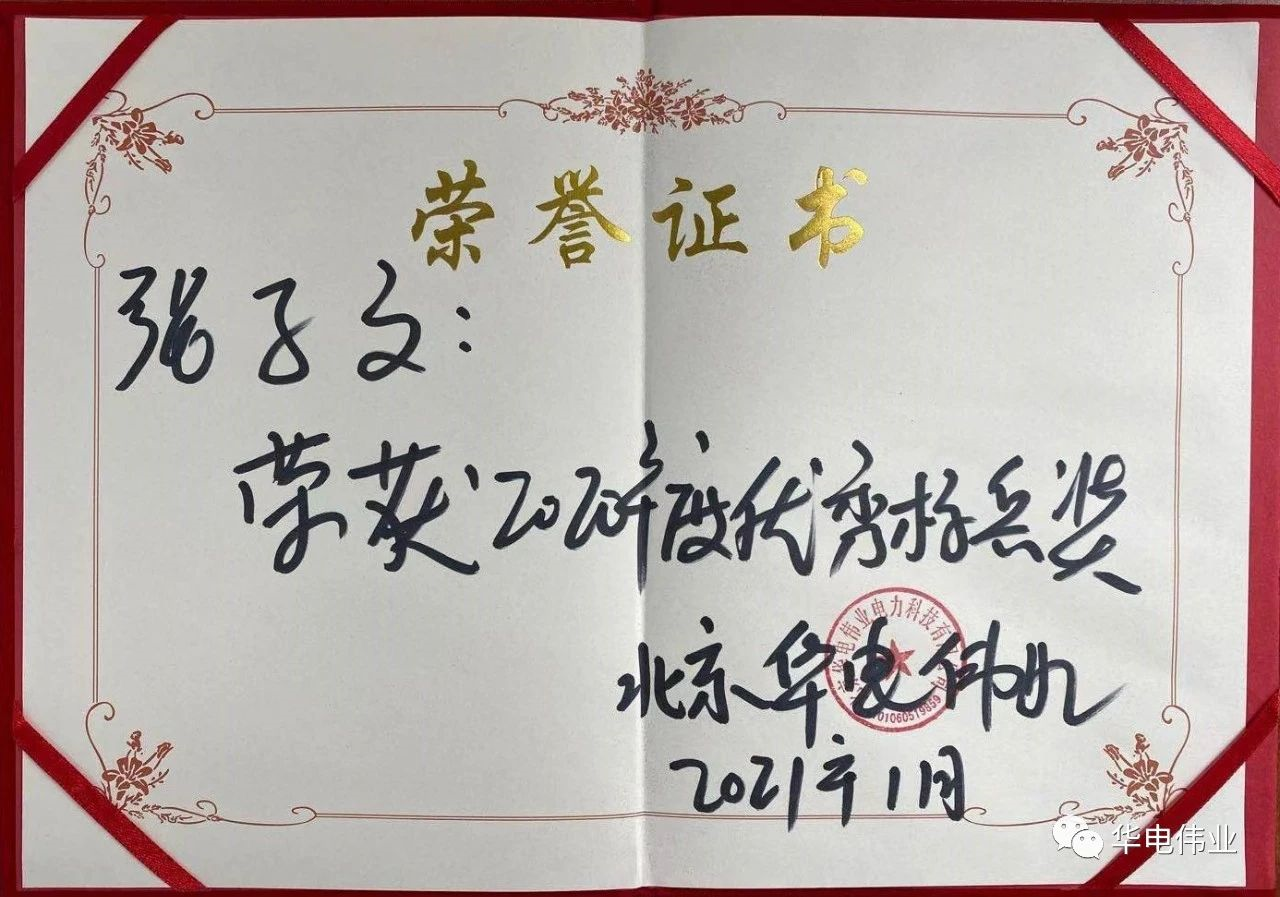 荣誉证书
张子文：
荣获2020年度优秀标兵奖
北京华电伟业
华电伟业电力科技有
01060519859
2021年1月
华电伟业